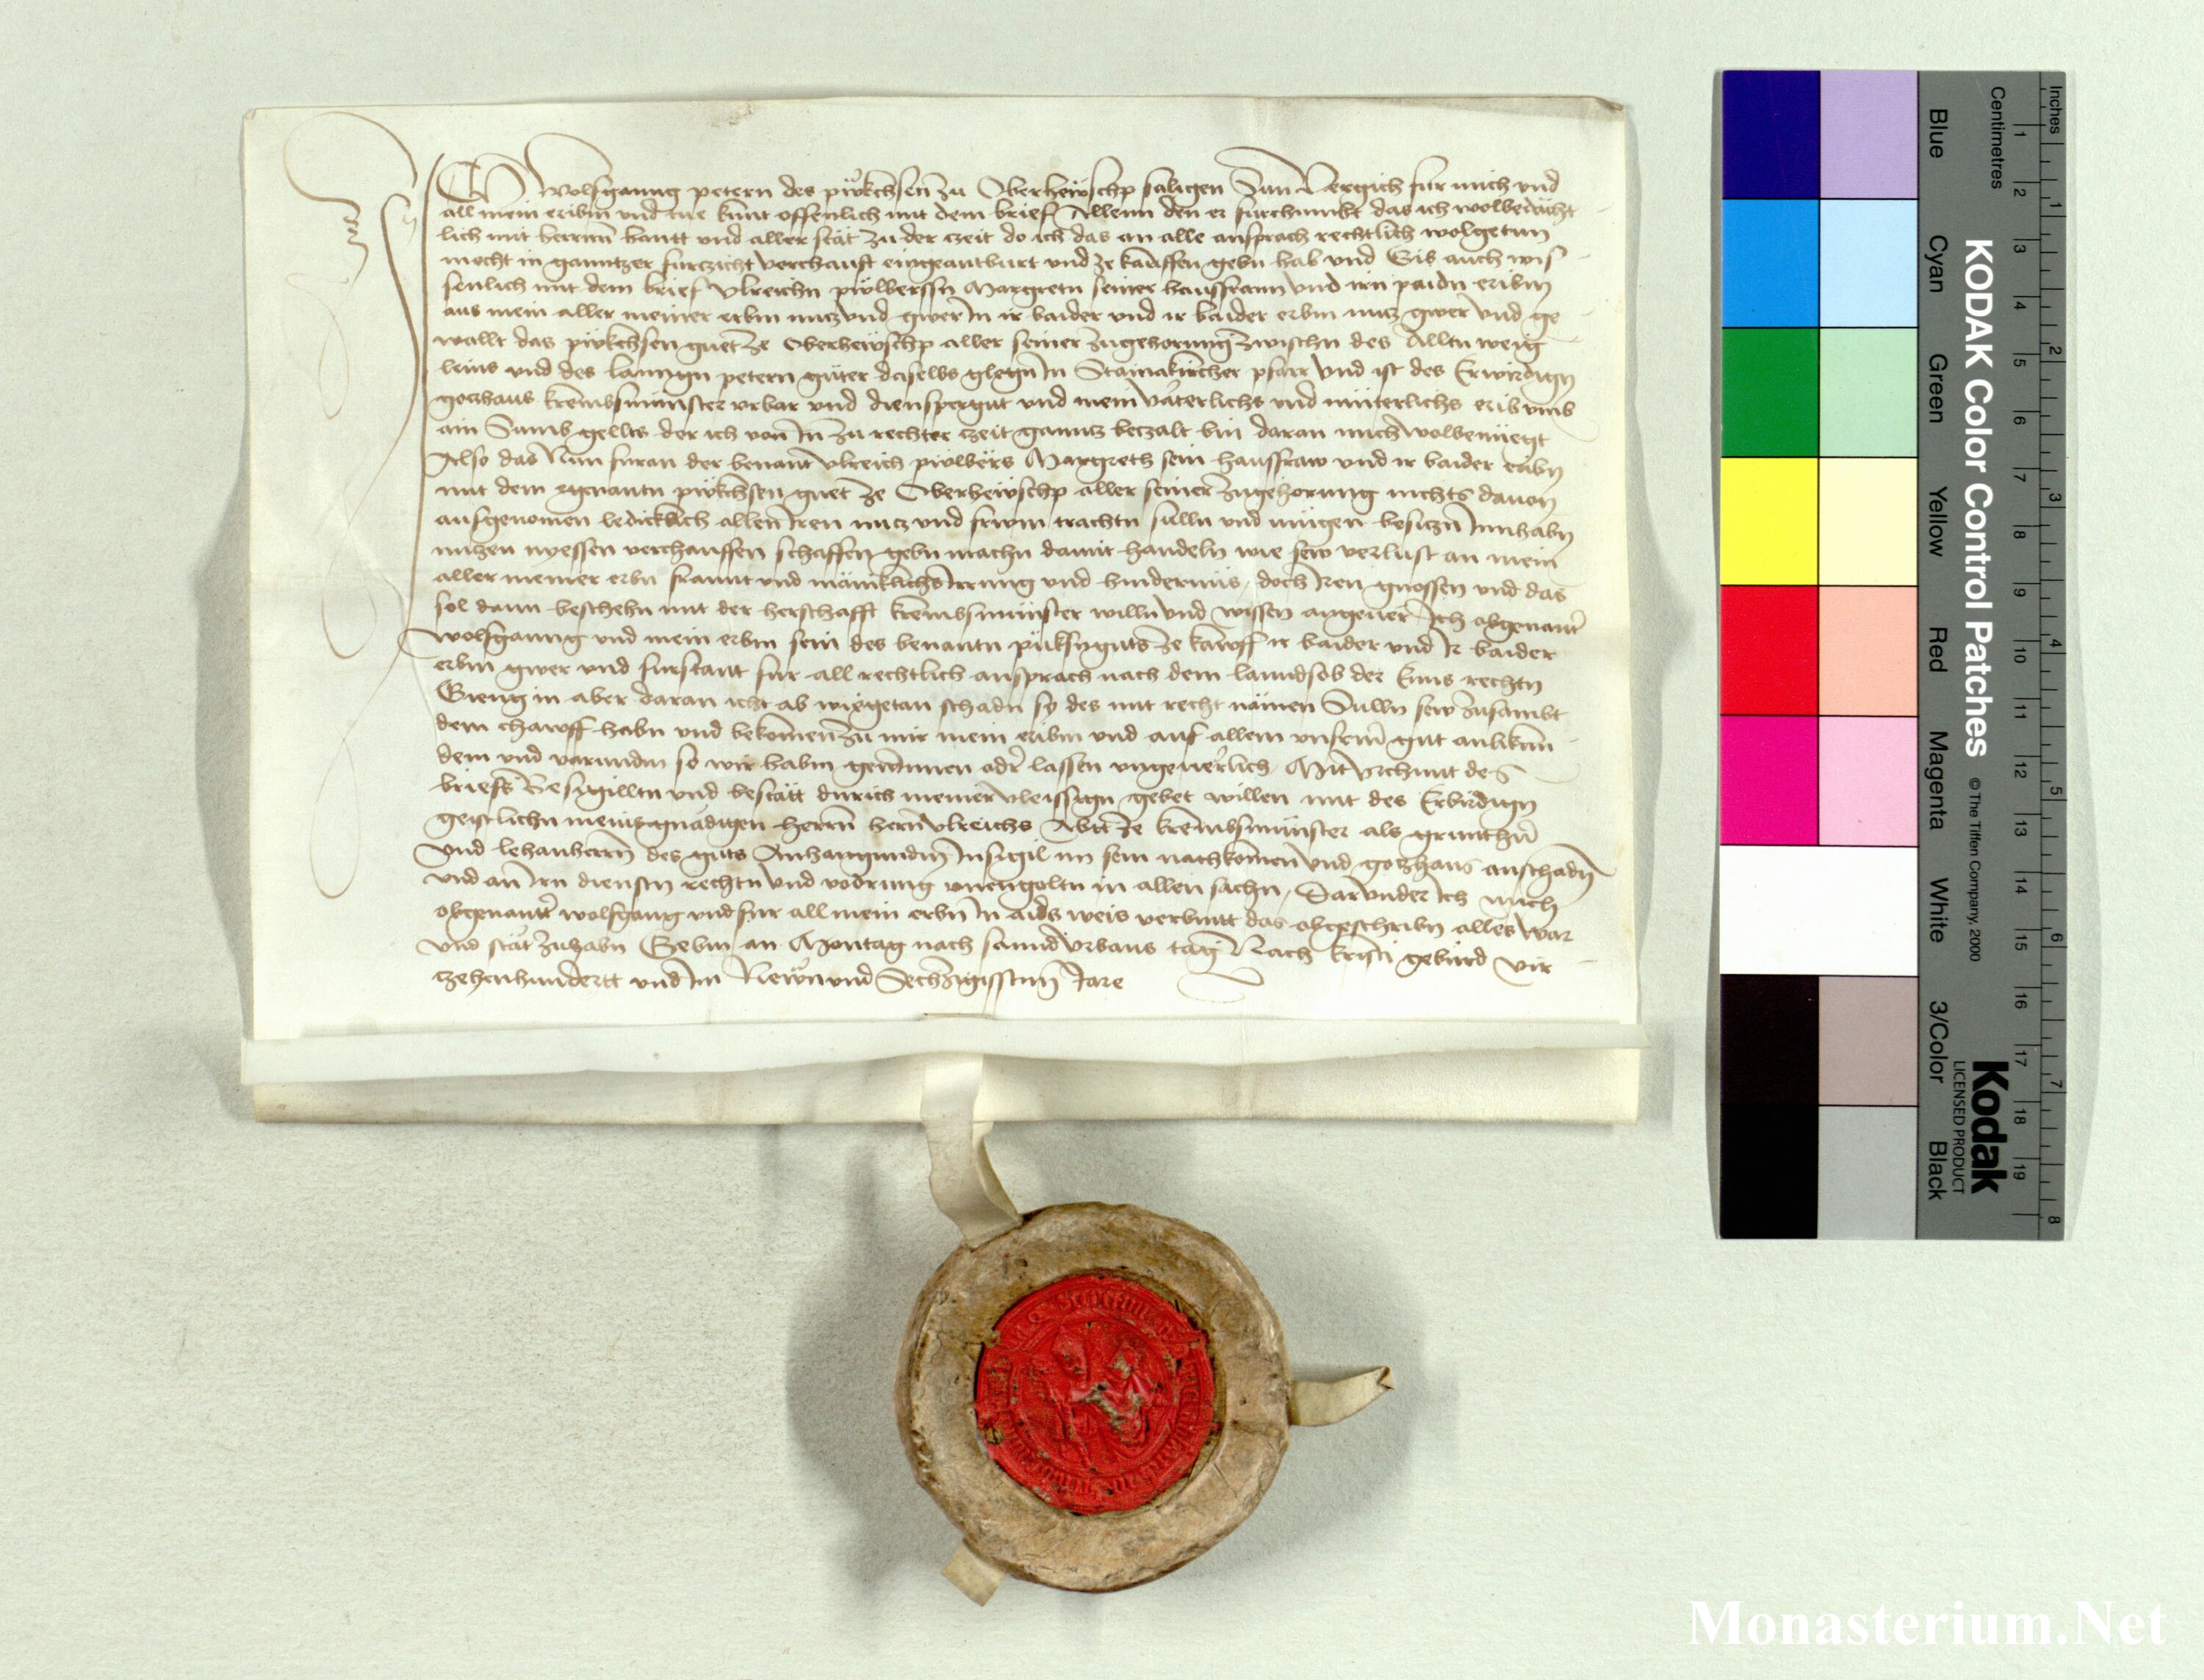 Ich Wolfganng petern des püxkchsen zu Oberheẅschp saligen Sun Vergich fur mich und
all mein eribm und tue kunt offenlich mit dem brief Allenn den er furchumbt das ich wolbedacht
lich mit herrnn hantt und aller stat zu der czeit do ich das an alle ansprach rechtlich wolgetun
mocht in ganntzer furczicht verchauft eingeantburt und ze kauffen gebn hab und Gib auch wis
senlich mit dem brief Ulreichn Margretn seiner hausfraun und irn paidn eribm
aus mein aller meiner erbm nucz und gwer In ir baider und ir baider erbm nucz gwer und ge
wallt das püxkchsen guet ze Oberheẅschp aller seiner zugehorung zwischn des Alltn weig
leins und des petern güter daselbs glegn In Stainakircher pfarr und ist des Erwirdign
goczhaus krembsmunster urbar und und mein vaterlichs und müterlichs erib umb
ain Sumb gellts der ich von In zu rechter czeit ganncz beczalt bin daran mich wolbenüegt
Also das Nun furan der benant Ulreich Margreth sein hausfraw und ir baider eribn
mit dem egenantn püxkchsen guet ze Oberheẅschp aller seiner zugehorung nichts davon
ausgenomen ledicklich allen Iren nucz und frwm trachtn sulln und mügen besiczn Innhabn
nuczen nyessen verchauffen schaffen gebn machn damit handeln wie sew verlust an mein
aller meiner erbn frannt und mänikclichs Irrung und hindernüs, doch Iren gnossen und das
sol dann beschehn mit der herschafft krembsmünster willn und wissen angeuer Ich obgenantr
Wolfganng und mein erbm sein des benantn püksnguts ze kawff ir baider und Ir baider
erbm gwer und furstant fur all rechtlich ansprach nach dem lanndsob der Enns rechtn
Gieng in aber daran icht ab schadn sy des mit recht nämen Sulln sew zusambt
dem chawff habn und bekomen zu mir mein eribm und auf allem unserm gut anlikunn
dem und varundm so wir habm gewinnen odr lassen ungeuerlich Mit Urchunt des
briefs Besygilltn und bestätt durich meiner vleissign gebet willen mit des Erbirdign
geistlichn meins gnädigen herrn hern Ulreichs Abtt ze krembsmünster als grunthern
Und lehanherrn des guts Anhangundm Insigil im sein nachkomen und goczhaus anschadn
und an Irn dienstn rechtn und vodrung unengoltn in allen sachn, Darunder Ich mich
obgenantr Wolfgang und fur all mein erbn In aids weis verbintt das obgeschribn alles war
und stät zuhabn Gebm an Montag nach sannd Urbans tag Nach kristi geburd vir
czehenhundertt und Im Newn und Sechczigisstnn Jare
KODAK Color Control Patches
© The Tiffen Company, 2000
Kodak
LICENSED PRODUCT
Inches
Centimetres
1 2 3 4 5 6 7 8
1 2 3 4 5 6 7 8 9 10 11 12 13 14 15 16 17 18 19
Blue
Cyan
Green
Yellow
Red
Magenta
White
3/Color
Black
Monasterium.Net